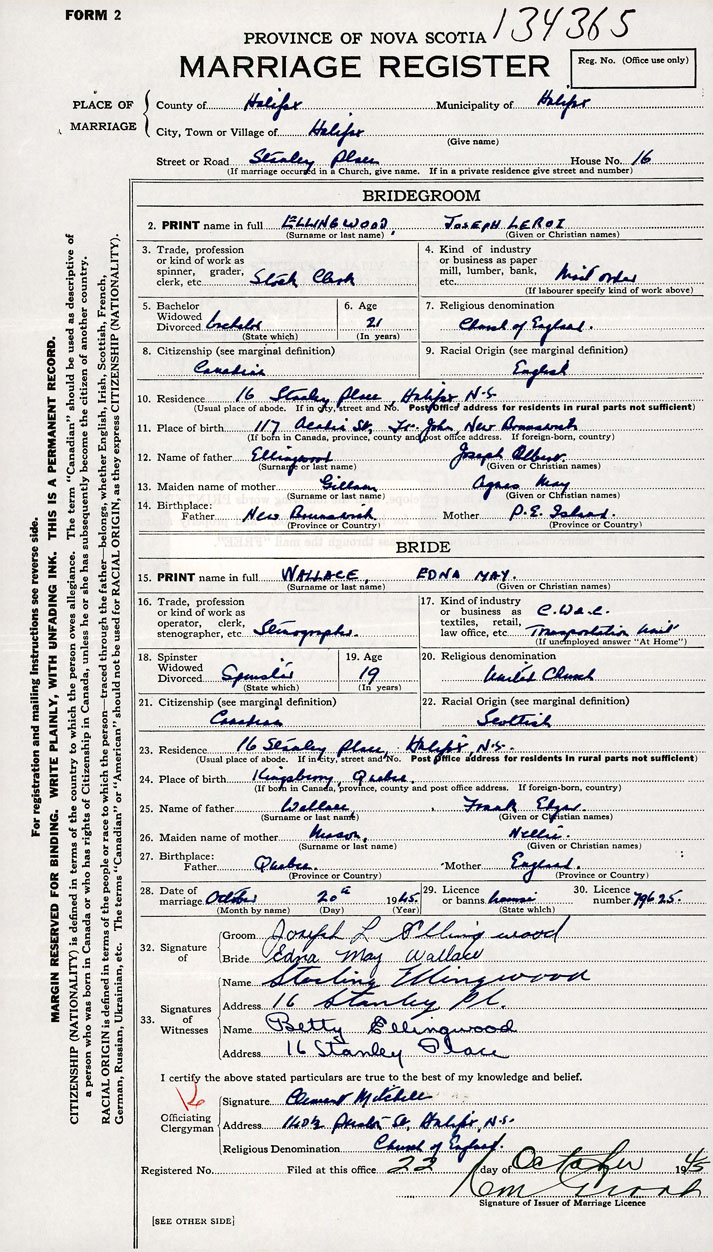 FORM 2
134365
PROVINCE OF NOVA SCOTIA
MARRIAGE REGISTER
Reg. No. (Office use only)
PLACE OF MARRIAGE
County of Halifax Municipality of Halifax
City, Town or Village of Halifax
(Give name)
Street or Road Stanley Place House No. 16
(If marriage occured in a Church, give name. If in a private residence give street and number)
BRIDEGROOM
2. PRINT name in full ELLINGWOOD, JOSEPH LEROI
(Surname or last name) (Given or Christian names)
3. Trade, profession or kind of work as spinner, grader, clerk, etc. Stock Clerk
4. Kind of industry or business as paper mill, lumber, bank, etc. Mail order
(If labourer specify kind of work above)
5. Bachelor Widowed Divorced bachelor
(State which)
6. Age 21
(In years)
7. Religious denomination
Church of England.
8. Citizenship (see marginal definition)
Canadian
9. Racial Origin (see marginal definition)
English
10. Residence 16 Stanley Place, Halifax N.S.
(Usual place of abode. If in city, street and No. Post Office address for residents in rural parts not sufficient)
11. Place of birth 117 St, John, New Brunswick
(If born in Canada, province, county and post office address. If foreign-born, country)
12. Name of father Ellingwood Joseph Albert.
(Surname or last name) (Given or Christian names)
13. Maiden name of mother Gillam Agnes May
(Surname or last name) (Given or Christian names)
14. Birthplace:
Father New Brunswick Mother P.E. Island.
(Province or Country) (Province or Country)
BRIDE
15. PRINT name in full WALLACE, EDNA MAY.
(Surname or last name) (Given or Christian names)
16. Trade, profession or kind of work as operator, clerk, stenographer, etc. Stenographer.
17. Kind of industry or business as textiles, retail, law office, etc. C.W.A.C. Transportation Unit
(If unemployed answer "At Home")
18. Spinster Widowed Divorced Spinster
(State which)
19. Age 19
(In years)
20. Religious denomination
United Church
21. Citizenship (see marginal definition)
Canadian
22. Racial Origin (see marginal definition)
Scottish
23. Residence 16 Stanley Place, Halifax, N.S.
(Usual place of abode. If in city, street and No. Post Office address for residents in rural parts not sufficient)
24. Place of birth Quebec
(If born in Canada, province, county and post office address. If foreign-born, country)
25. Name of father Wallace, Frank Edgar
(Surname or last name) (Given or Christian names)
26. Maiden name of mother Nellie.
(Surname or last name) (Given or Christian names)
27. Birthplace:
Father Quebec. Mother England.
(Province or Country) (Province or Country)
28. Date of marriage October 20th 1945.
(Month by name) (Day) (Year)
29. Licence or banns license
(State which)
30. Licence number 79625.
32. Signature of
Groom Joseph L Ellingwood
Bride Edna May Wallace
33. Signatures of Witnesses
Name Sterling Ellingwood
Address 16 Stanley Pl.
Name Betty Ellingwood
Address 16 Stanley Place
I certify the above stated particulars are true to the best of my knowledge and belief.
Officiating Clergyman
Signature Clement Mitchell
Address St, Halifax, N.S.
Religious Denomination Church of England.
Registered No. Filed at this office 22 day of October 1945
Signature of Issuer of Marriage Licence
[SEE OTHER SIDE]
For registration and mailing Instructions see reverse side.
MARGIN RESERVED FOR BINDING. WRITE PLAINLY, WITH UNFADING INK. THIS IS A PERMANENT RECORD.
CITIZENSHIP (NATIONALITY) is defined in terms of the country to which the person owes allegiance. The term "Canadian" should be used as descriptive of
a person who was born in Canada or who has rights of Citizenship in Canada, unless he or she has subsequently become the citizen of another country.
RACIAL ORIGIN is defined in terms of the people or race to which the person—traced through the father—belongs, whether English, Irish, Scottish, French,
German, Russian, Ukrainian, etc. The terms "Canadian" or "American" should not be used for RACIAL ORIGIN, as they express CITIZENSHIP (NATIONALITY).